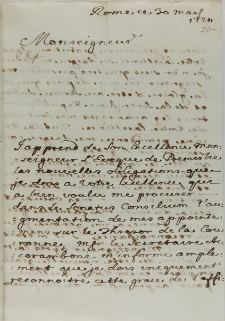 Rome, ce, 30 mars
1720
Monseigneur
J'apprend de Son Excellence, Mon
seigneur l'Eveque de
les nouvelles obligations, que
je dois a Votre Excellence qui
a bien voulu me procurer
dans le Senatus Consilium l'au
gmentation de mes appointe
mens sur le Thresor de la Cou
ronne. Mr le Secretaire,
m'informe ample
ment que je dois uniquement
reconnoitre cette grace de l'effi